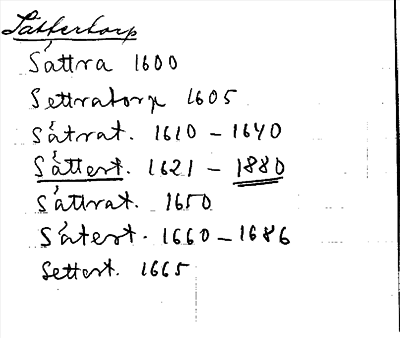 Sättertorp
Sättra 1600
Settratorp 1605
Sätrat. 1610 - 1640
Sättert. 1621 - 1880
Sättrat. 1650
Sätert. 1660 - 1686
Settert. 1665